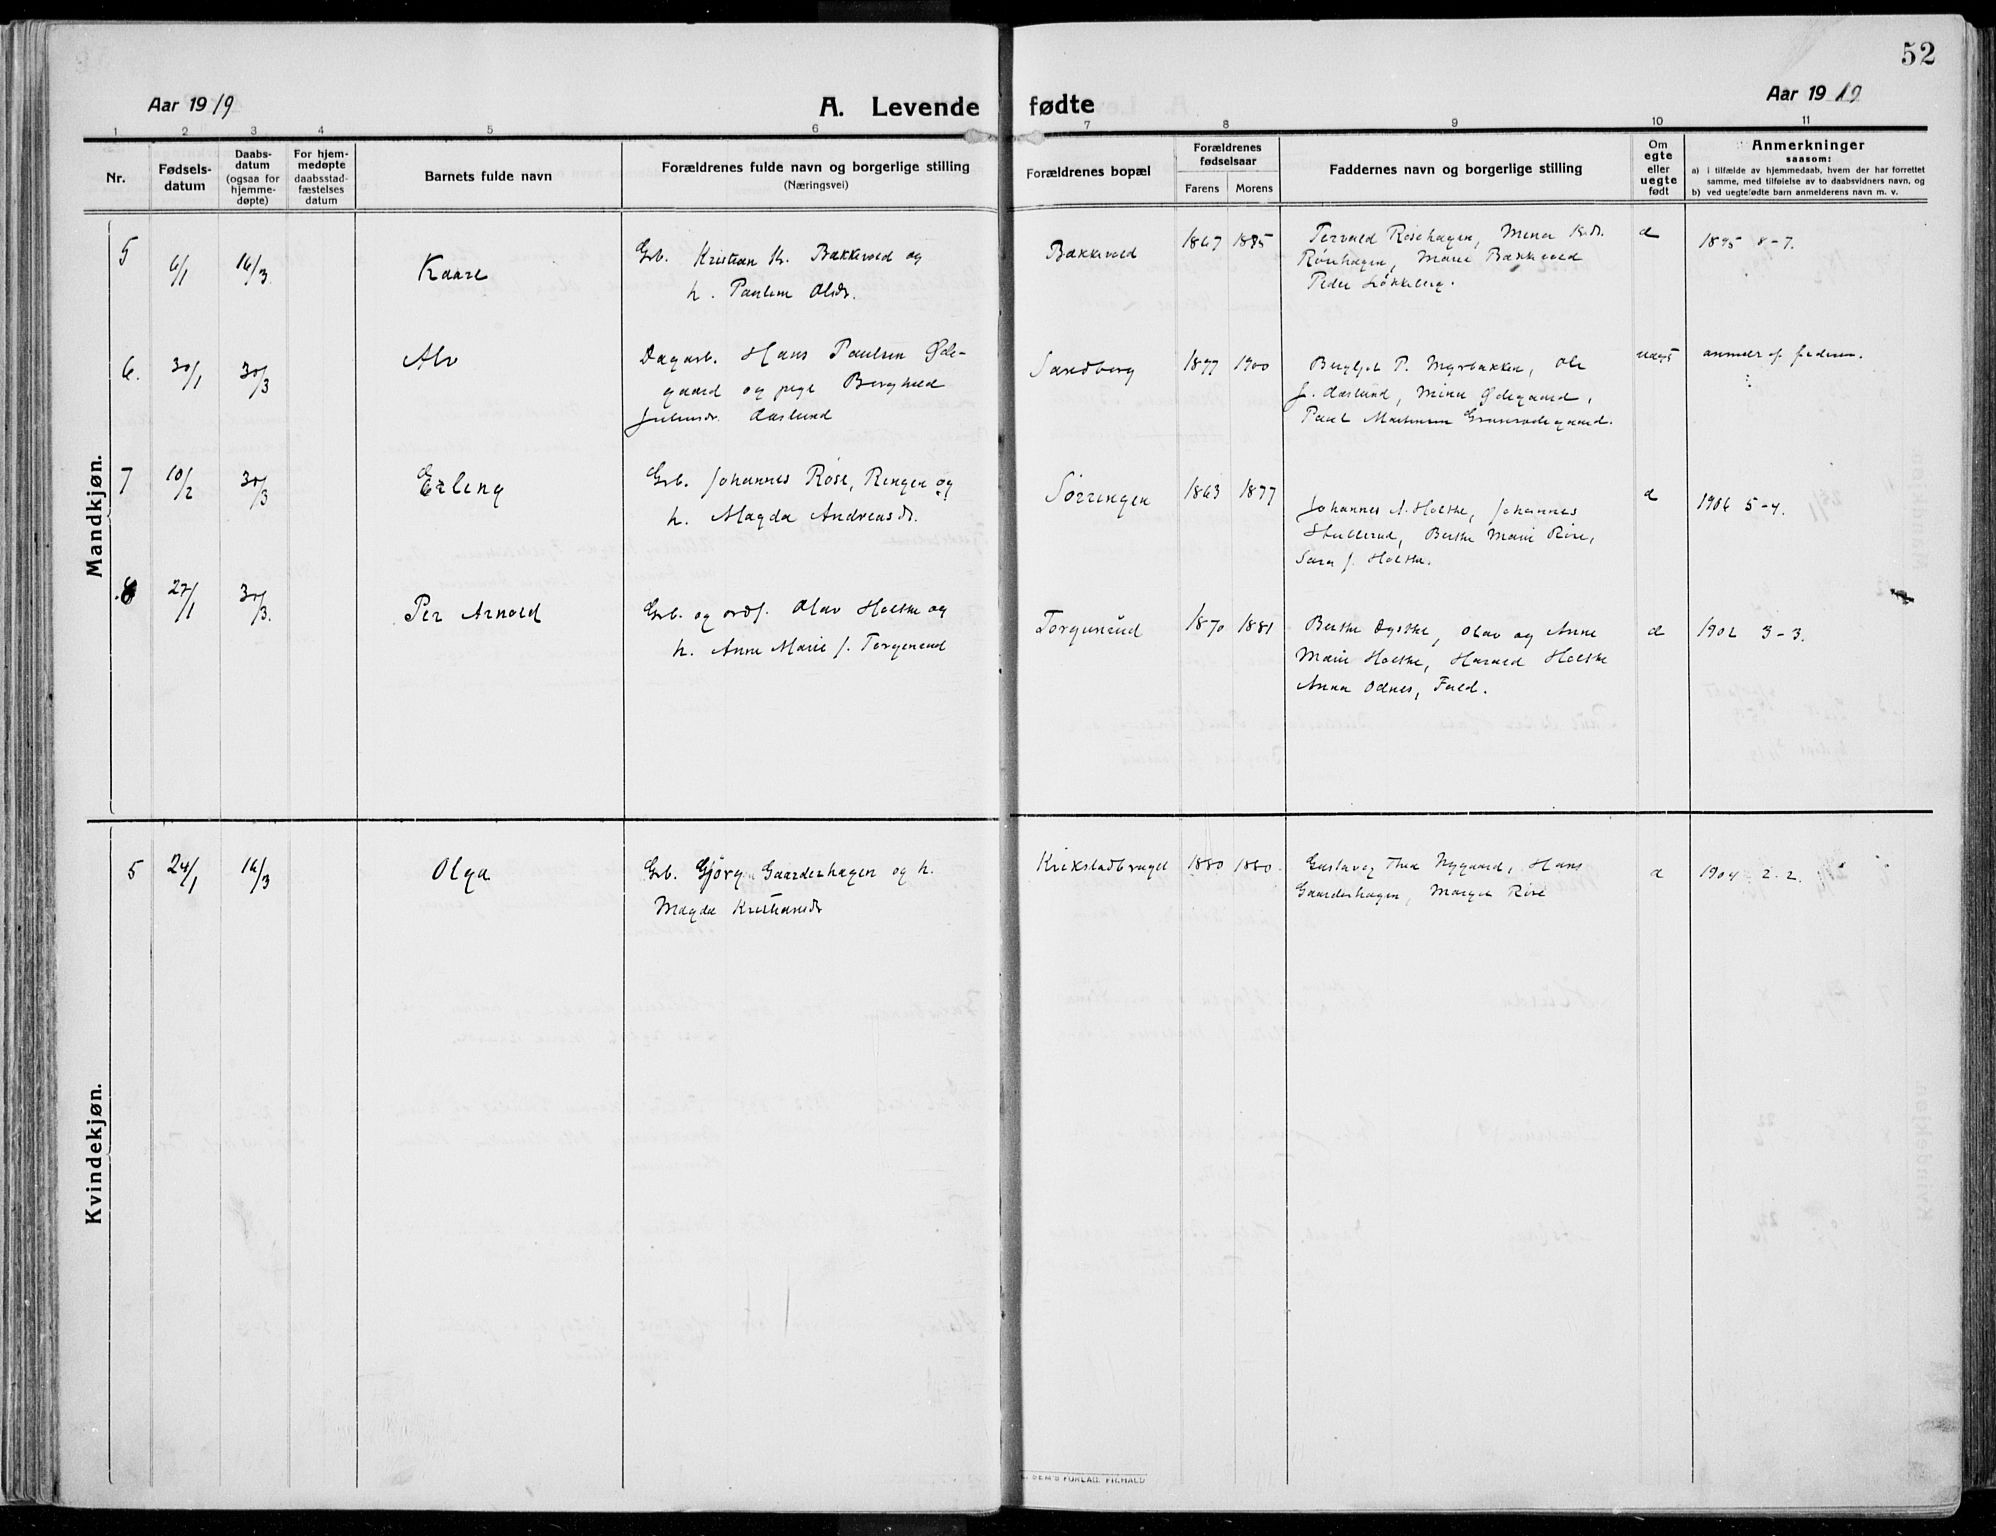 52
Aar 1919
A. Levende fødte
Aar 1919
1 2 3 4 5 6 7 8 9 10 11
Nr.
Fødsels-
datum
Daabs-
datum
(ogsaa for
hjemme-
døpte)
For hjem-
medøpte
daabsstad-
fæstelses
datum
Barnets fulde navn
Forældrenes fulde navn og borgerlige stilling
(Næringsvei)
Forældrenes bopæl
Forældrenes
fødselsaar
Farens Morens
Faddernes navn og borgerlige stilling
Om
egte
eller
uegte
født
Anmerkninger
saasom:
a) i tilfælde av hjemmedaab, hvem der har forrettet
samme, med tilføielse av to daabsvidners navn, og
b) ved uegteførdte barn anmelderens navn m. v.
Mandkjøn.
5 6/1 16/3 Kaare
Grb. Kristian Kr. Bækkevold og
h. Pauline Olsdr.
Bækkevold 1867 1885
Torvald Rosehagen, Mina
Rosehagen, Marie Bækkevold
Peder Løkkeberg.
d 1895 8-7.
6. 30/1 30/3 Alv
Dagarb. Hans Paulsen Øde-
gaard og pige Borghild
Juliusdr. Aaslund
Sandberg 1877 1900
Bergljot P. Myrbakken, Ole
J. Aaslund, Mina Ødegaard,
Paul Martinsen
uegt anmeldt af faderen.
7 10/2 30/3 Erling
Grb. Johannes Røse, Ringen og
h. Magda Andreasdr.
Sørringen 1863 1877
Johannes A. Holthe, Johannes
Skullerud, Berthe Marie Røse,
Sara J. Holthe.
d 1906 5-4.
8 27/1 30/3. Per Arnold
Grb. og ordf. Olav Holthe og
h. Anne Marie f. Torgunrud
Torgunrud 1870 1881
Berthe Dysthe, Olav og Anne
Marie Holthe, Harald Holthe
Anna Odnes, Fald.
d 1902 3-3.
Kvindekjøn.
5 24/1 16/3 Olga
Grb. Gjørg Gaarderhagen og h.
Magda Kristiansdr
Krikstadbraget 1880 1880.
Gustav og Thea Nygaard, Hans
Gaarderhagen, Margit Røise
d 1904 2-2.
FORLAG. FR.HALD